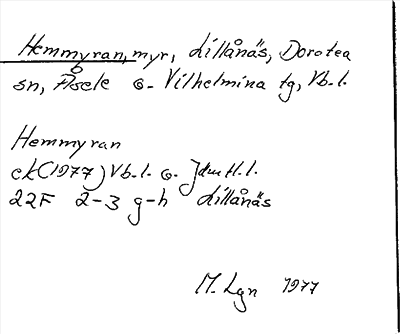 Hemmyran, myr, Lillånäs, Dorotea
sn, Åsele o. Vilhelmina tg, Vb. l.
Hemmyran
ek (1977) Vb. l. o. Jämtl. l.
22F 2-3 g-h Lillånäs
M. Lgn 1977